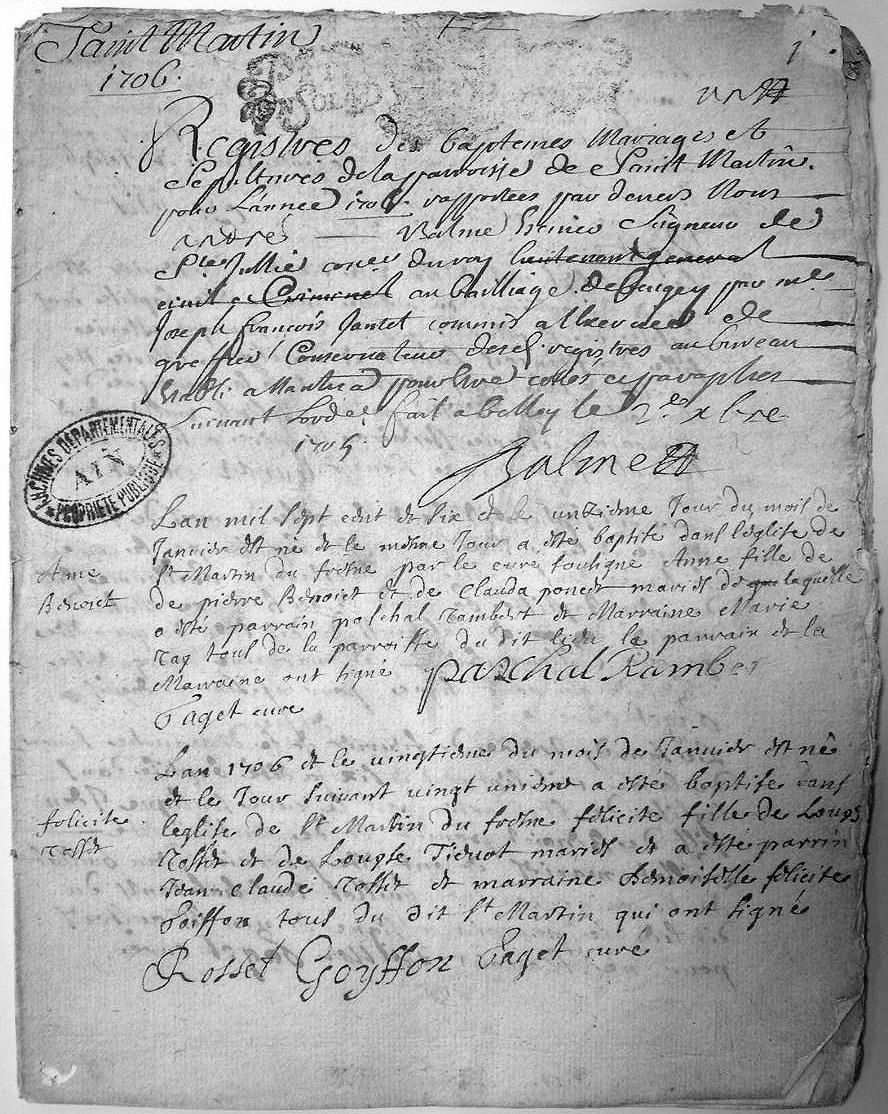 Saint Martin
1706.
1
Registres des baptemes Mariages et
Sepultures de la parroisse de Saint Martin.
pour L'année 1706. rapportees par devers Nous
André Balme Seigneur de
Ste Jullie coner. du roy lieutenant general
civil et Criminel au bailliage de bugey par me.
Joseph francois Jantet commis a l'exercice de
greffier Conservateur desd. registres au bureau
Establi a Nantua pour Estre cottés et paraphes
suivant Lordre fait a belley le 2e xbre
1705
Balme
ARCHIVES DEPARTEMENTALES
AIN
PROPRIETE PUBLIQUE
Lan mil sept cent et six et le unzieme Jour du mois de
Janvier est né et le mesme Jour a esté baptisé dans l'eglise de
St Martin du fresne par le curé soubligné Anne fille de
Anne
Benoict
de pierre Benoict et de Clauda poncet mariés de que laquelle
a esté parrain paschal Rambert et Marraine Marie
tous de la parroisse du dit lieu le parrain et la
Marraine ont signé
paschal Rambert
Paget curé
Lan 1706 et le vingtieme du mois de Janvier est né
et le Jour suivant vingt unieme a esté baptisée dans
leglise de St Martin du fresne félicité fille de Louys
félicité
Rosset
Rosset et de Louyse mariés et a esté parrin
Jean Claude Rosset et marraine demoiselle félicité
Goiffon tous du dit St Martin qui ont signé
Rosset Goyffon Paget curé